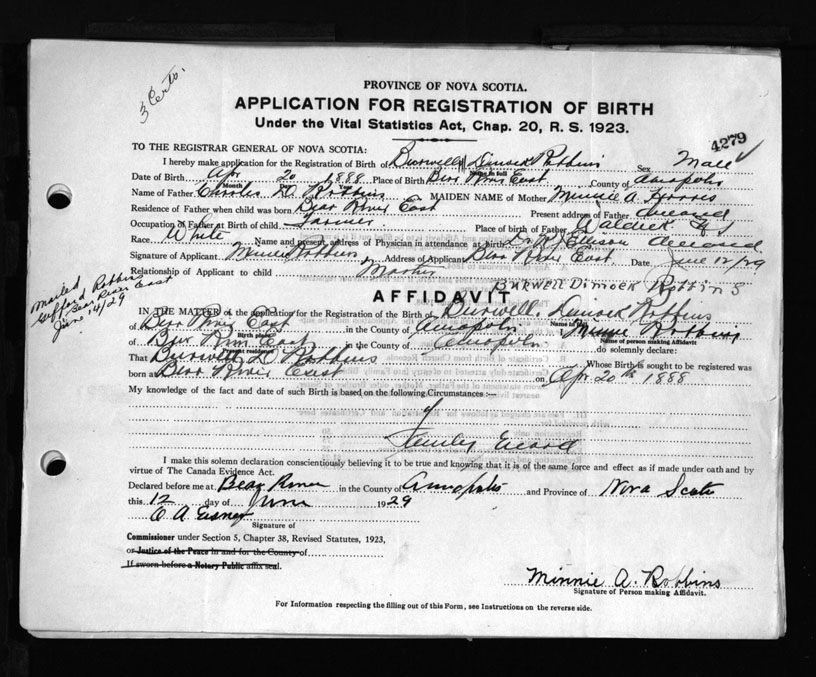 3 Certs.
PROVINCE OF NOVA SCOTIA.
APPLICATION FOR REGISTRATION OF BIRTH
Under the Vital Statistics Act, Chap. 20, R. S. 1923.
4279
TO THE REGISTRAR GENERAL OF NOVA SCOTIA:
I hereby make application for the Registration of Birth of Burwell Dimock Robbins Sex Male
Name in full
Date of Birth Apr 20 1888 Place of Birth Bear River East County of Annapolis
Month Year
Name of Father Charles D. Robbins MAIDEN NAME of Mother Minnie A.
Residence of Father when child was born Bear River East Present address of Father deceased
Occupation of Father at Birth of child Farmer Place of birth of Father
Race White Name and present address of Physician in attendance at birth Dr. Ellison deceased
Signature of Applicant Minnie Robbins Address of Applicant Bear River East Date June 12/29
Relationship of Applicant to child Mother
BURWELL DIMOCK ROBBINS
Mailed
Robbins
Bear River East
Jun 14/29
AFFIDAVIT
IN THE MATTER of the application for the Registration of the Birth of Burwell Dimock Robbins
Name in full
of Bear River East in the County of Annapolis Minnie Robbins
Birth place Name of person making Affidavit
of Bear River East in the County of Annapolis do solemnly declare:
Present residence
That Burwell D Robbins Whose Birth is sought to be registered was
born at Bear River East on Apr. 20th 1888
My knowledge of the fact and date of such Birth is based on the following Circumstances:—
Family Record
I make this solemn declaration conscientiously believing it to be true and knowing that it is of the same force and effect as if made under oath and by
virtue of The Canada Evidence Act.
Declared before me at Bear River in the County of Annapolis and Province of Nova Scotia
this 12 day of June 1929
Signature of
Commissioner under Section 5, Chapter 38, Revised Statutes, 1923,
or Justice of the Peace in and for the County of
If sworn before a Notary Public affix seal.
Minnie A. Robbins
Signature of Person making Affidavit.
For Information respecting the filling out of this Form, see Instructions on the reverse side.